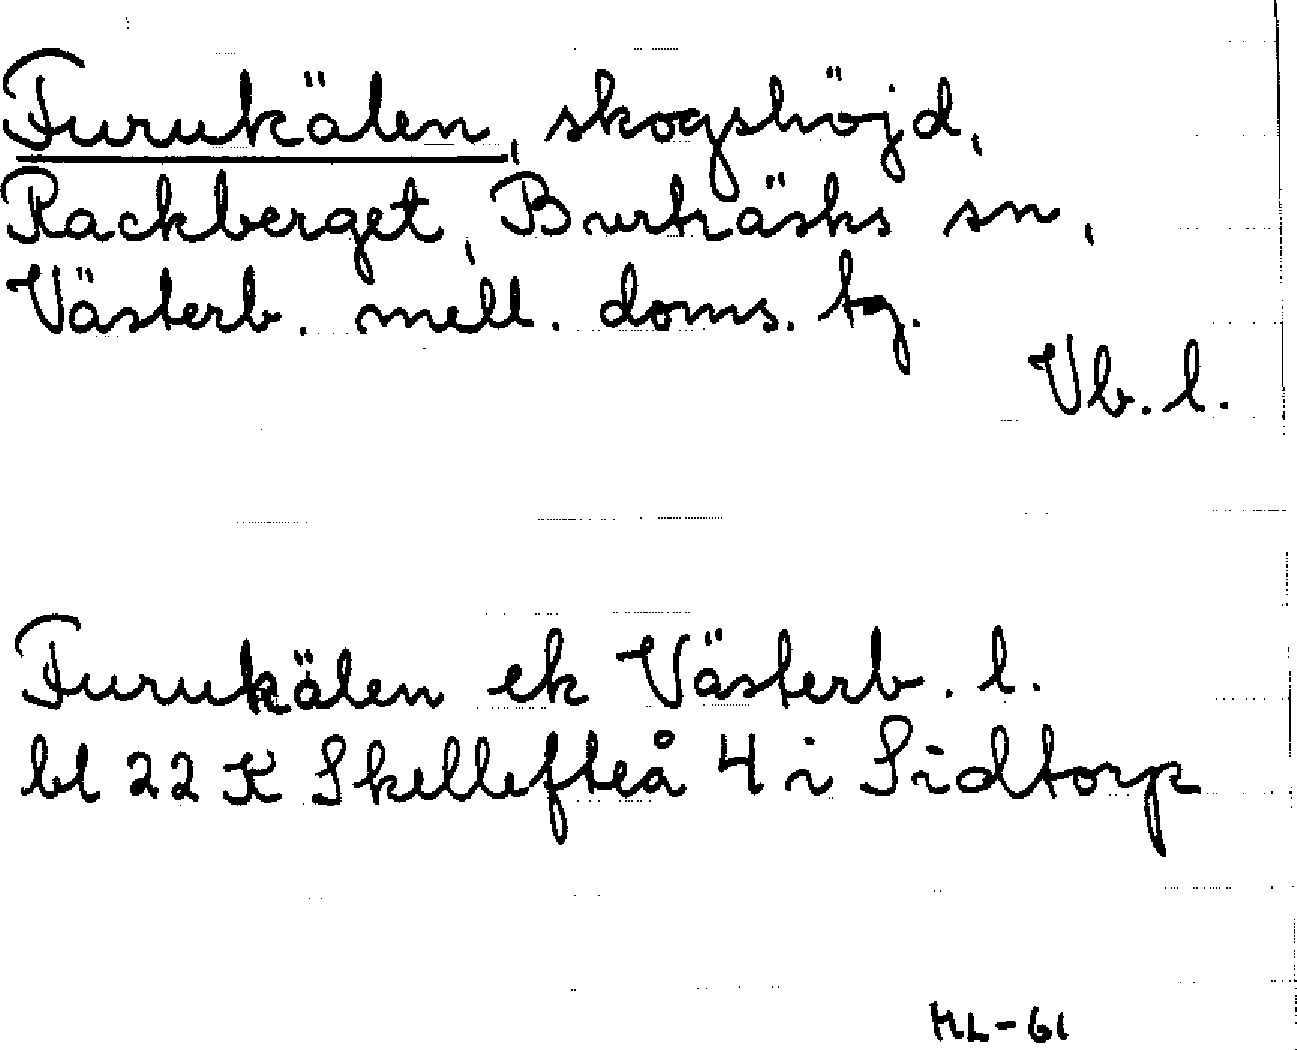 Furukälen, skogshöjd,
Rackberget, Burträsks sn,
Västerb. mell. doms. tg.
Vb. l.
Furukälen ek Västerb. l.
bl 22 K Skellefteå 4 i Sidtorp
ML-61